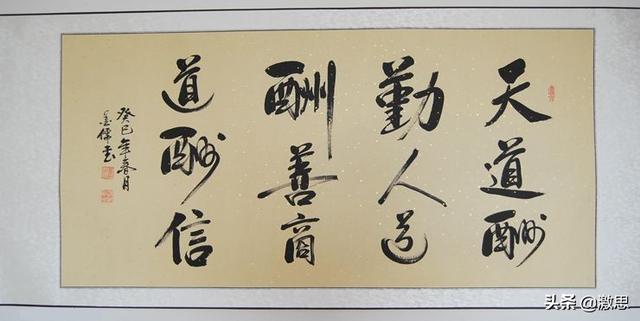 天道酬
勤人道
酬善商
道酬信
癸巳年春月
头条 @激思